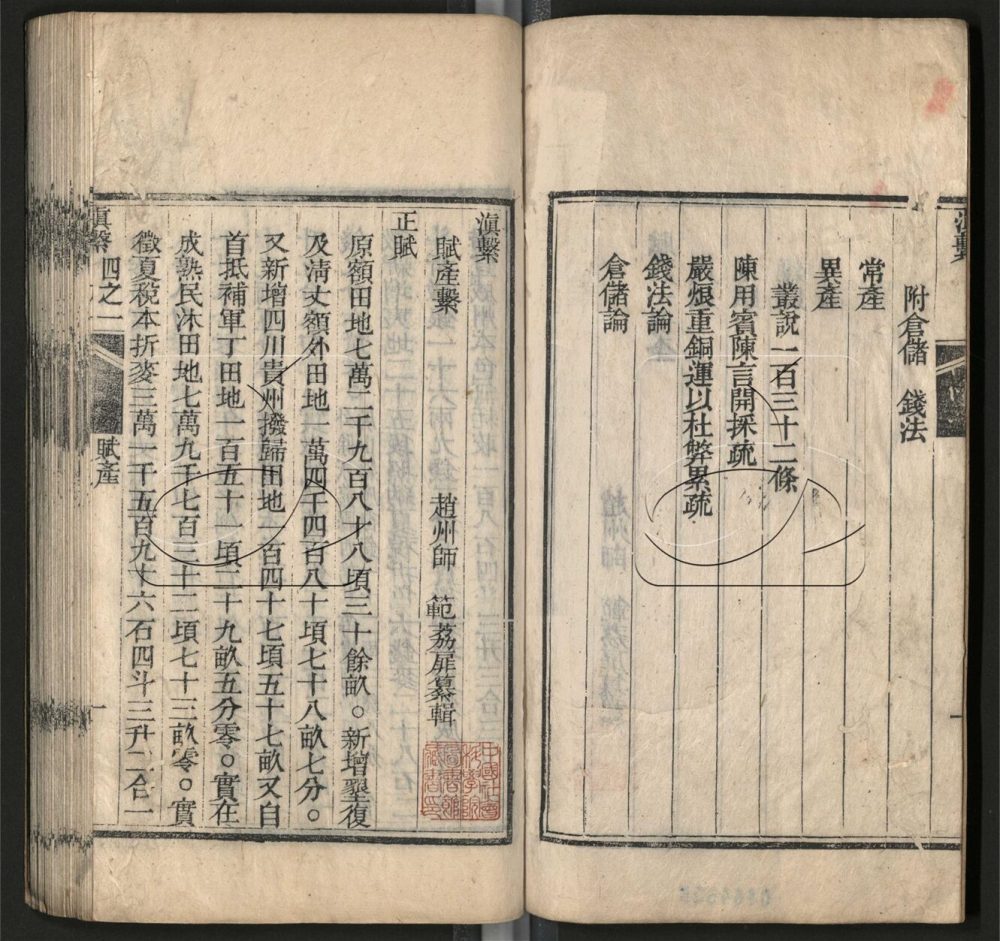 附倉儲　錢法
常產
異產
叢說一百三十二條
陳用賓陳言開採疏
嚴烺重銅運以杜弊累疏
錢法論
倉儲論
滇繫
賦產繫
趙州師　範荔扉纂輯
正賦
原額田地七萬二千九百八才八頃三十餘畝。新增墾復
及清丈額外田地一萬四千四百八十頃七十八畝七分。
又新增四川貴州撥歸田地一百四十七頃五十七畝又自
首抵補軍丁田地一百五十一頃二十九畝五分零。實在
成熟民沐田地七萬九千七百三十二頃七十三畝零。實
徵夏稅本折麥三萬一千五百九十六石四斗三升二合一
滇繫　四之一　賦產　一